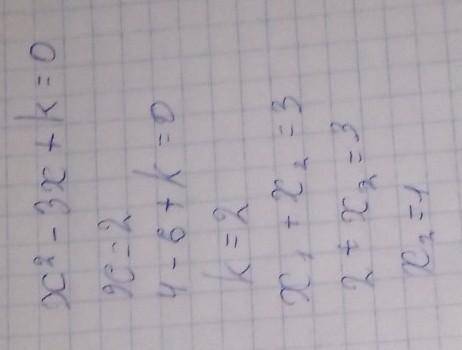 x² - 3x + k = 0
x = 2
4 - 6 + k = 0
k = 2
x₁ + x₂ = 3
2 + x₂ = 3
x₂ = 1